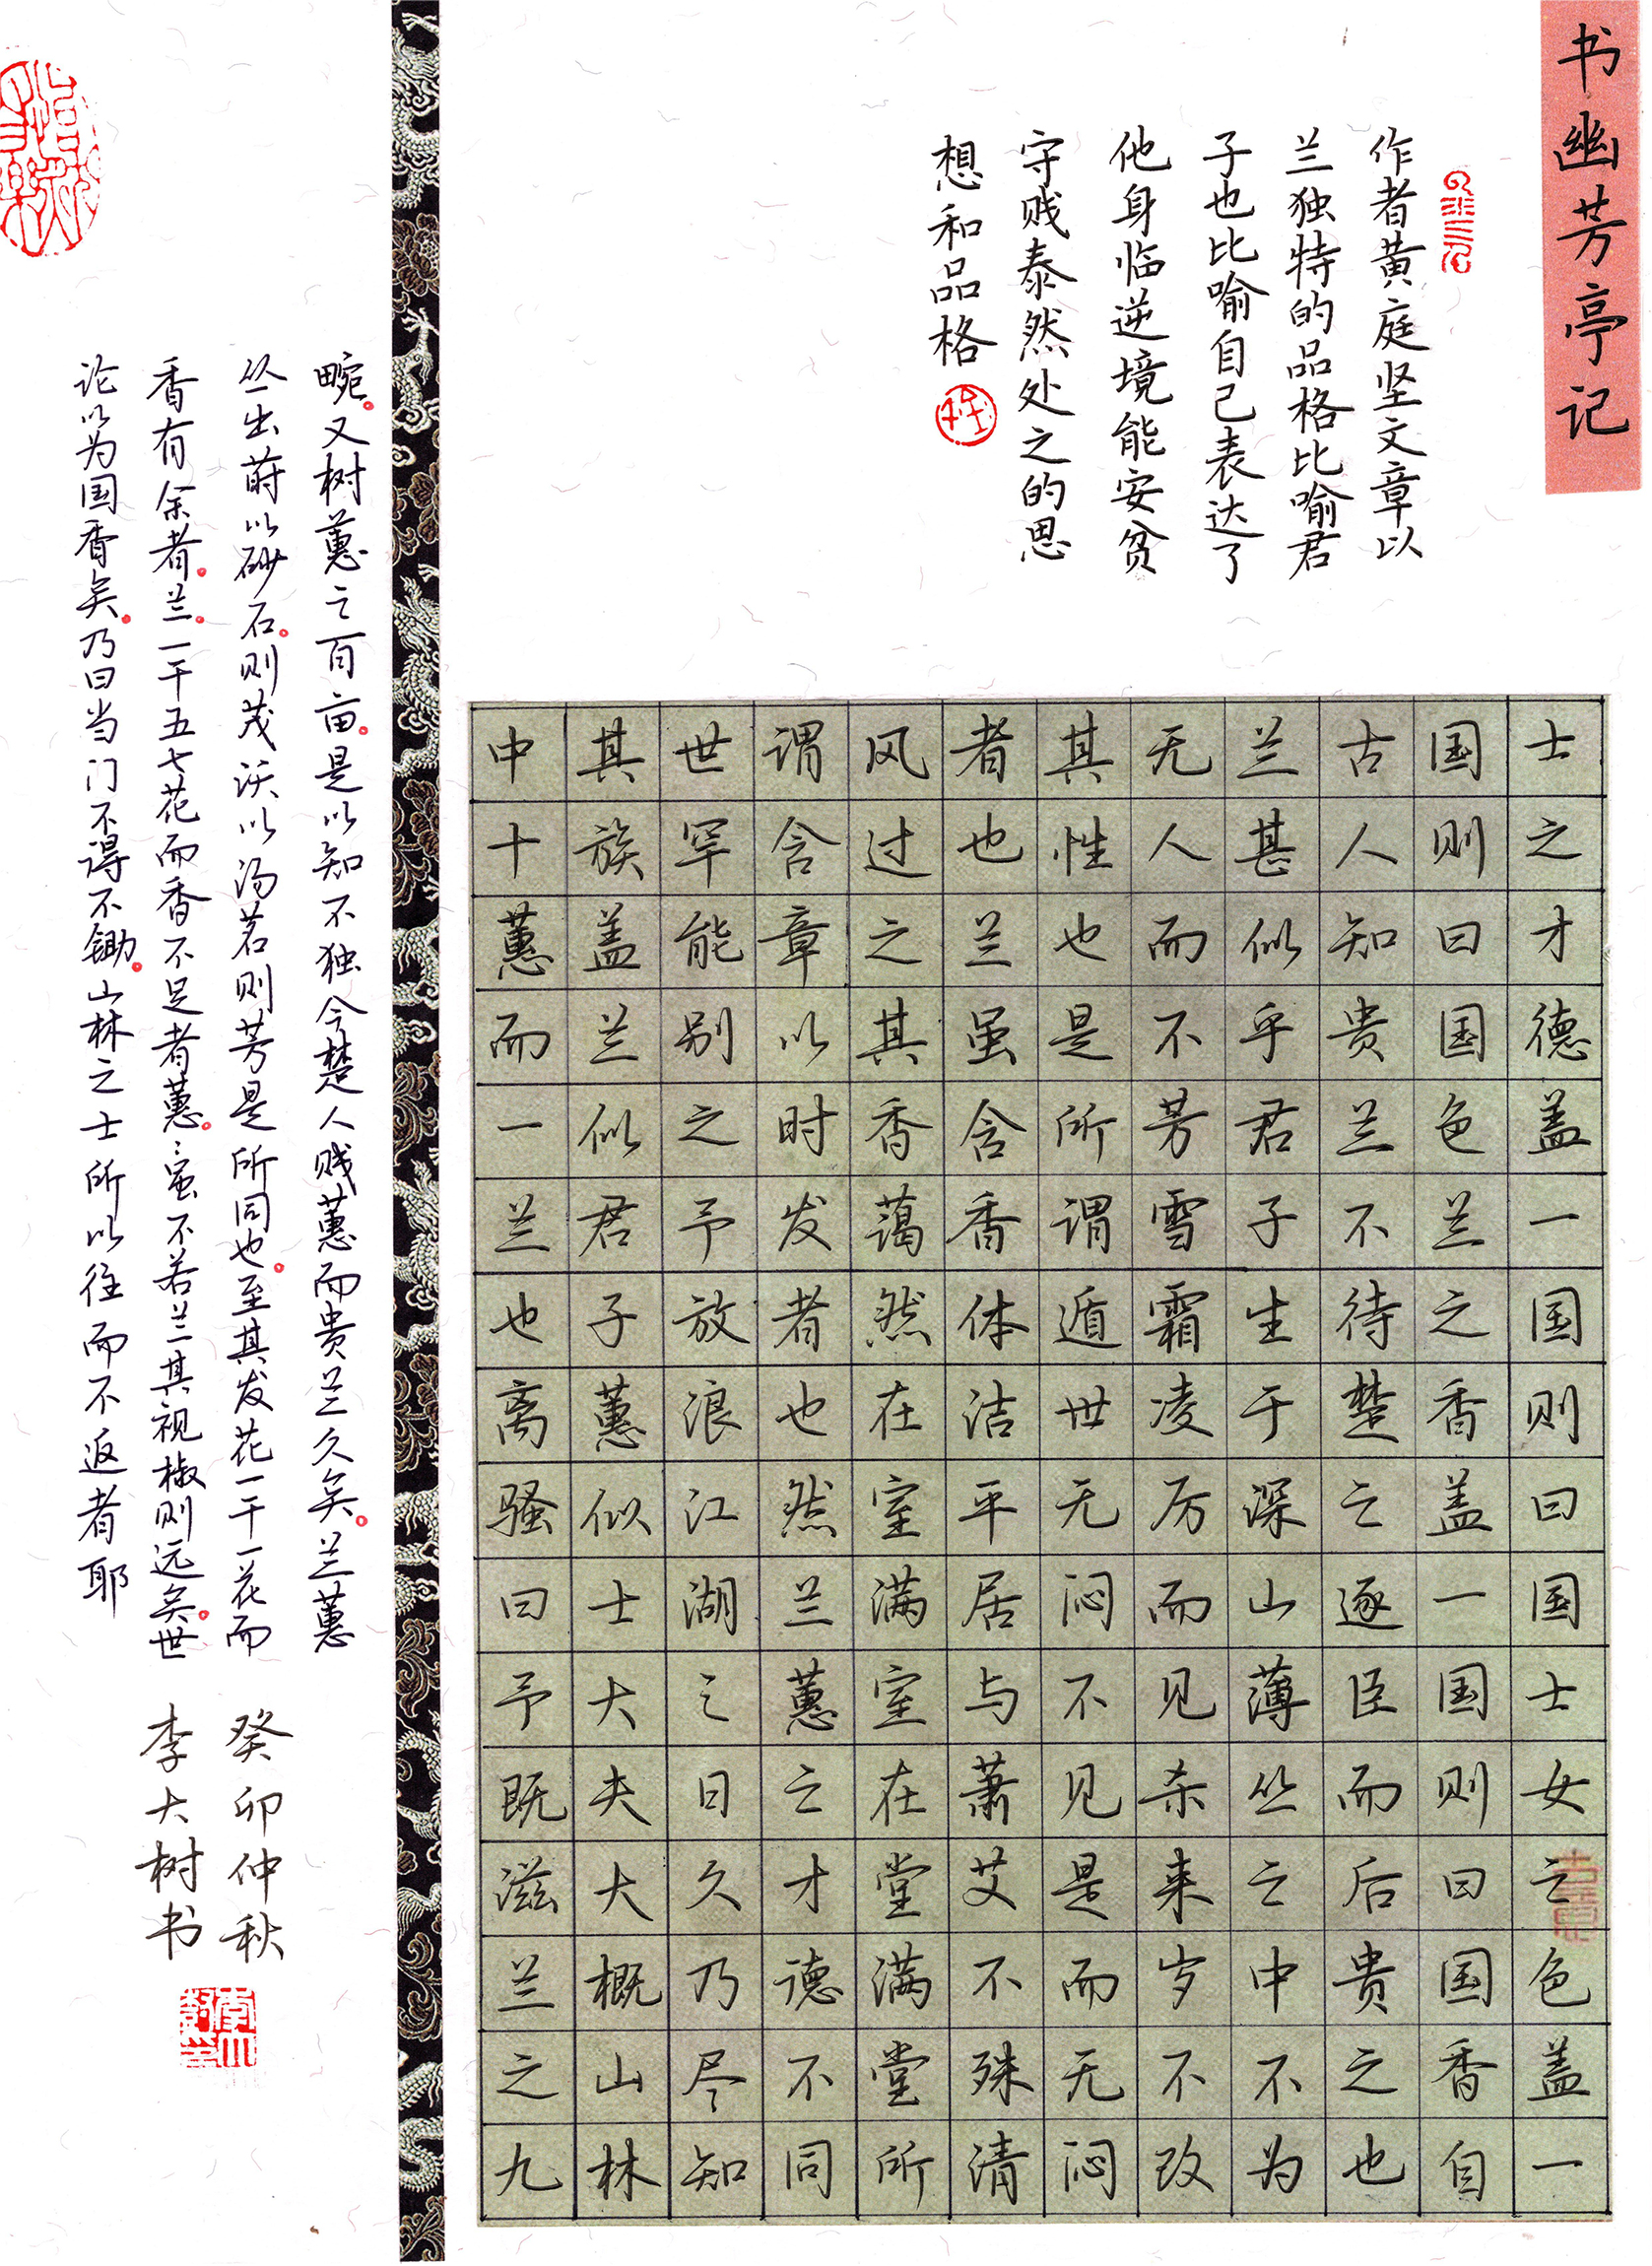 书幽芳亭记
作者黄庭坚文章以
兰独特的品格比喻君
子也比喻自己表达了
他身临逆境能安贫
守贱泰然处之的思
想和品格
士之才德盖一国则曰国士女之色盖一
国则曰国色兰之香盖一国则曰国香自
古人知贵兰不待楚之逐臣而后贵之也
兰甚似乎君子生于深山薄丛之中不为
无人而不芳雪霜凌厉而见杀来岁不改
其性也是所谓遁世无闷不见是而无闷
者也兰虽含香体洁平居与萧艾不殊清
风过之其香蔼然在室满室在堂满堂所
谓含章以时发者也然兰蕙之才德不同
世罕能别之予放浪江湖之日久乃尽知
其族盖兰似君子蕙似士大夫大概山林
中十蕙而一兰也离骚曰予既滋兰之九
畹。又树蕙之百亩。是以知不独今楚人贱蕙而贵兰久矣。兰蕙
丛出莳以砂石。则茂沃以汤茗则芳是所同也。至其发花一干一花而
香有余者。兰。一干五七花而香不足者蕙。〻虽不若兰其视椒则远矣。世
论以为国香矣。乃曰当门不得不锄。山林之士所以往而不返者耶
癸卯仲秋
李大树书